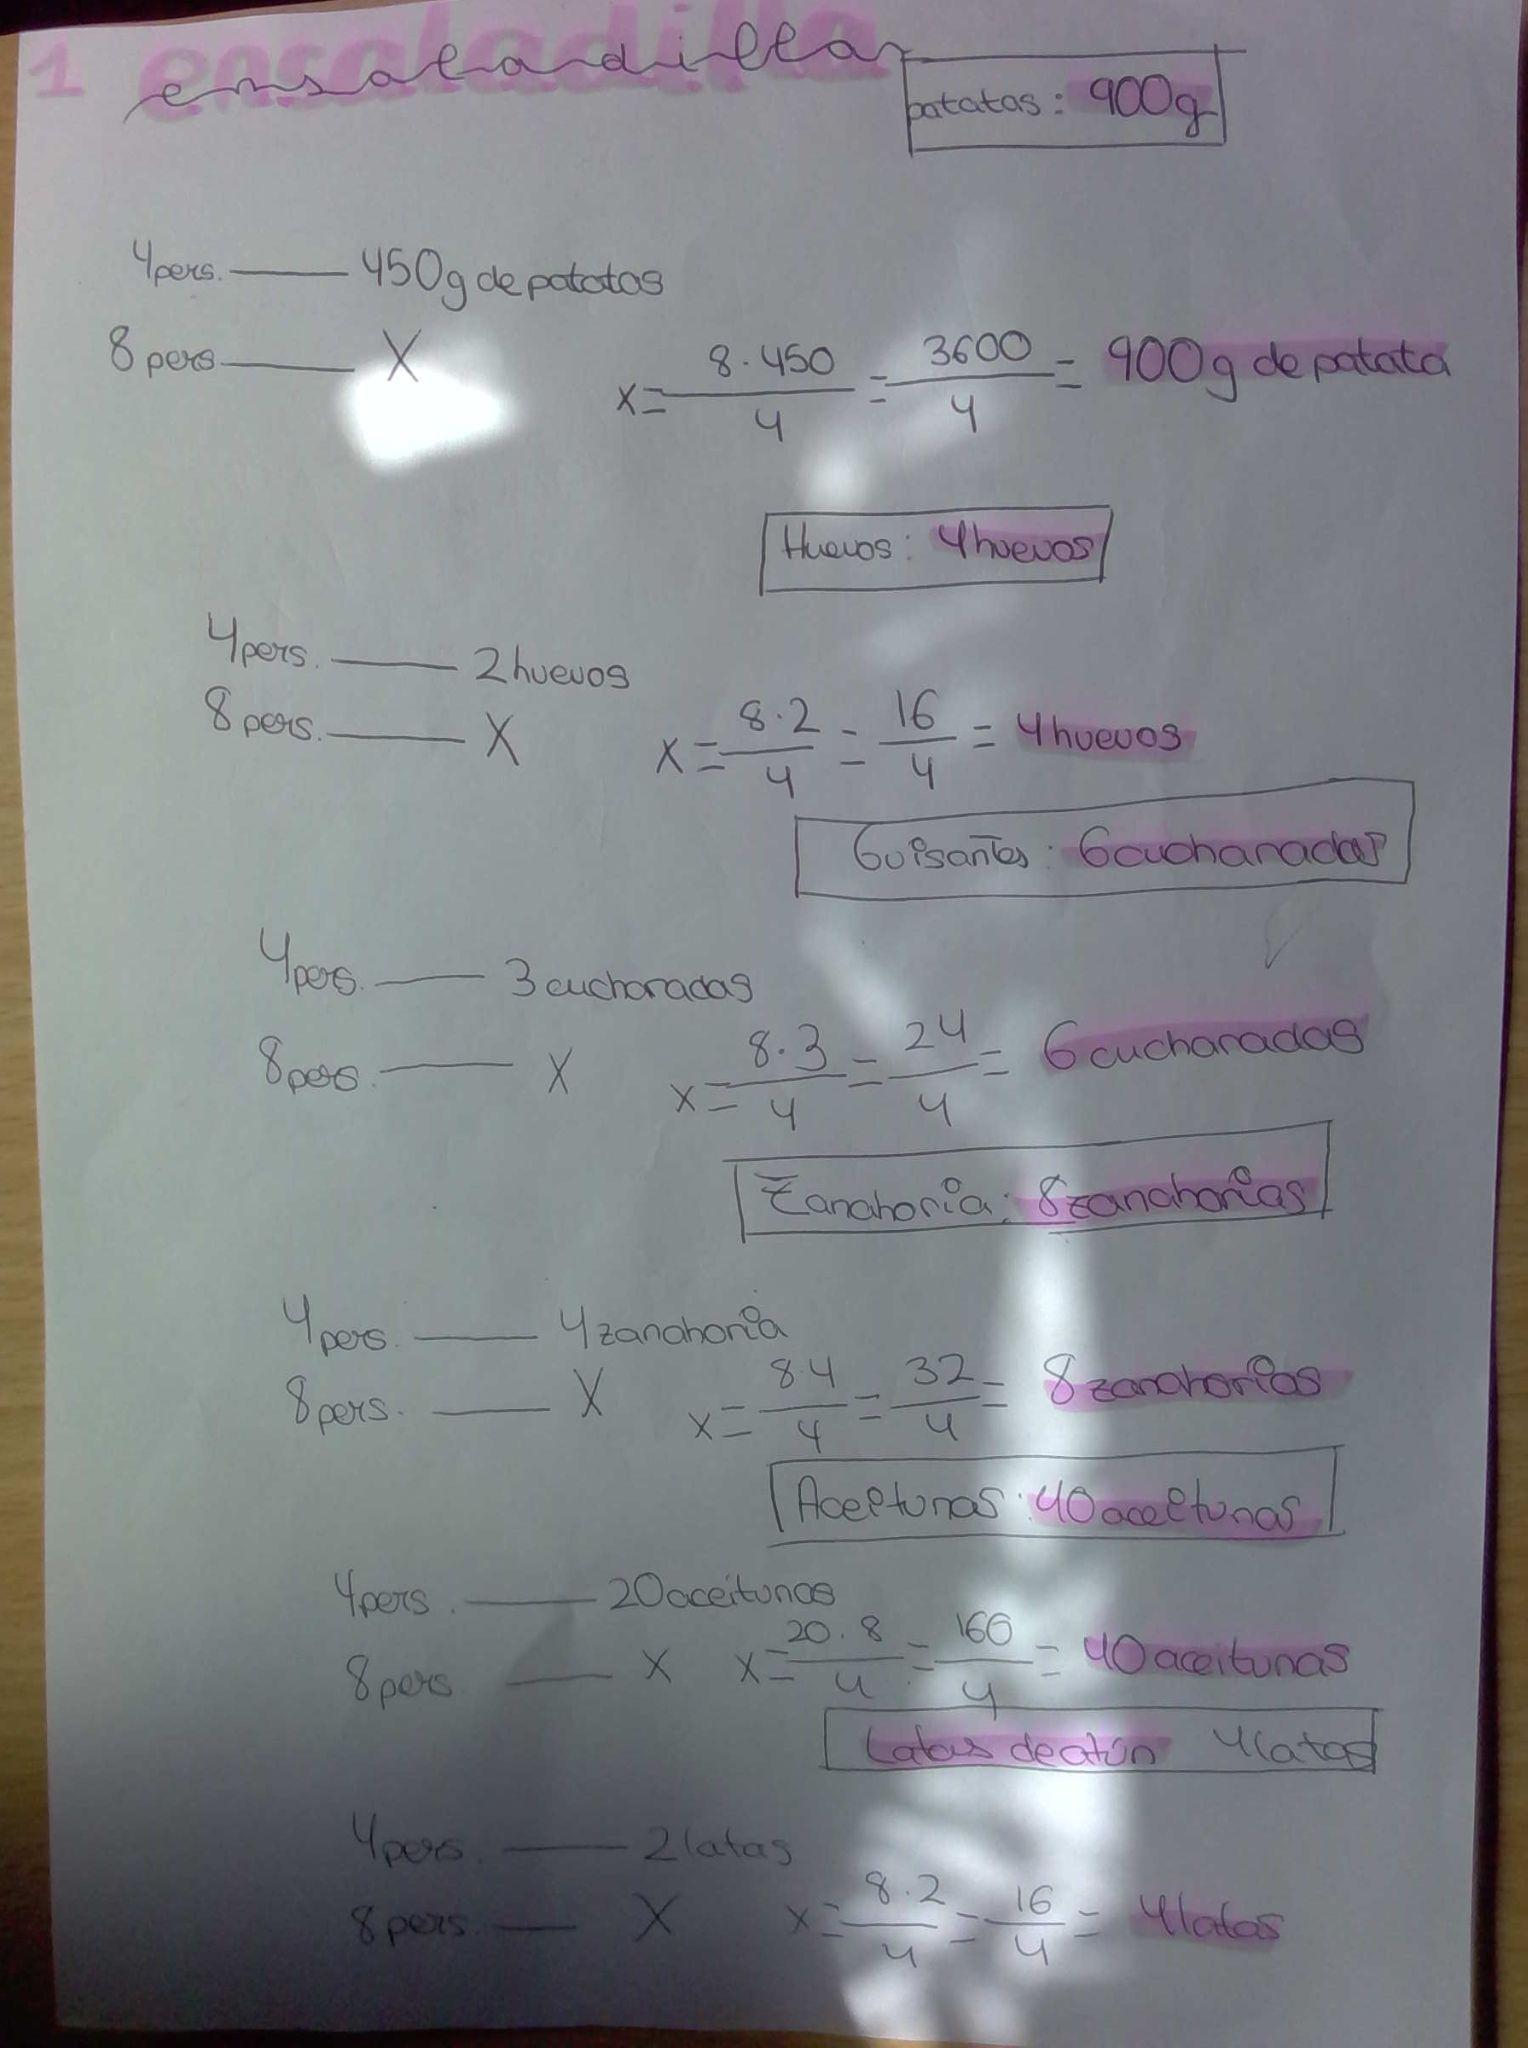 1 ensaladilla
patatas: 900g
4pers. — 450g de patatas
8pers — X
x = 8·450 / 4 = 3600 / 4 = 900g de patata
Huevos: 4huevos
4pers. — 2huevos
8pers. — X
x = 8·2 / 4 = 16 / 4 = 4huevos
Guisantes: 6cucharadas
4pers. — 3cucharadas
8pers. — X
x = 8·3 / 4 = 24 / 4 = 6cucharadas
Zanahoria: 8zanahorias
4pers. — 4zanahoria
8pers. — X
x = 8·4 / 4 = 32 / 4 = 8zanahorias
Aceitunas: 40aceitunas
4pers. — 20aceitunas
8pers — X
x = 20·8 / 4 = 160 / 4 = 40aceitunas
Latas de atún 4latas
4pers. — 2latas
8pers — X
x = 8·2 / 4 = 16 / 4 = 4latas